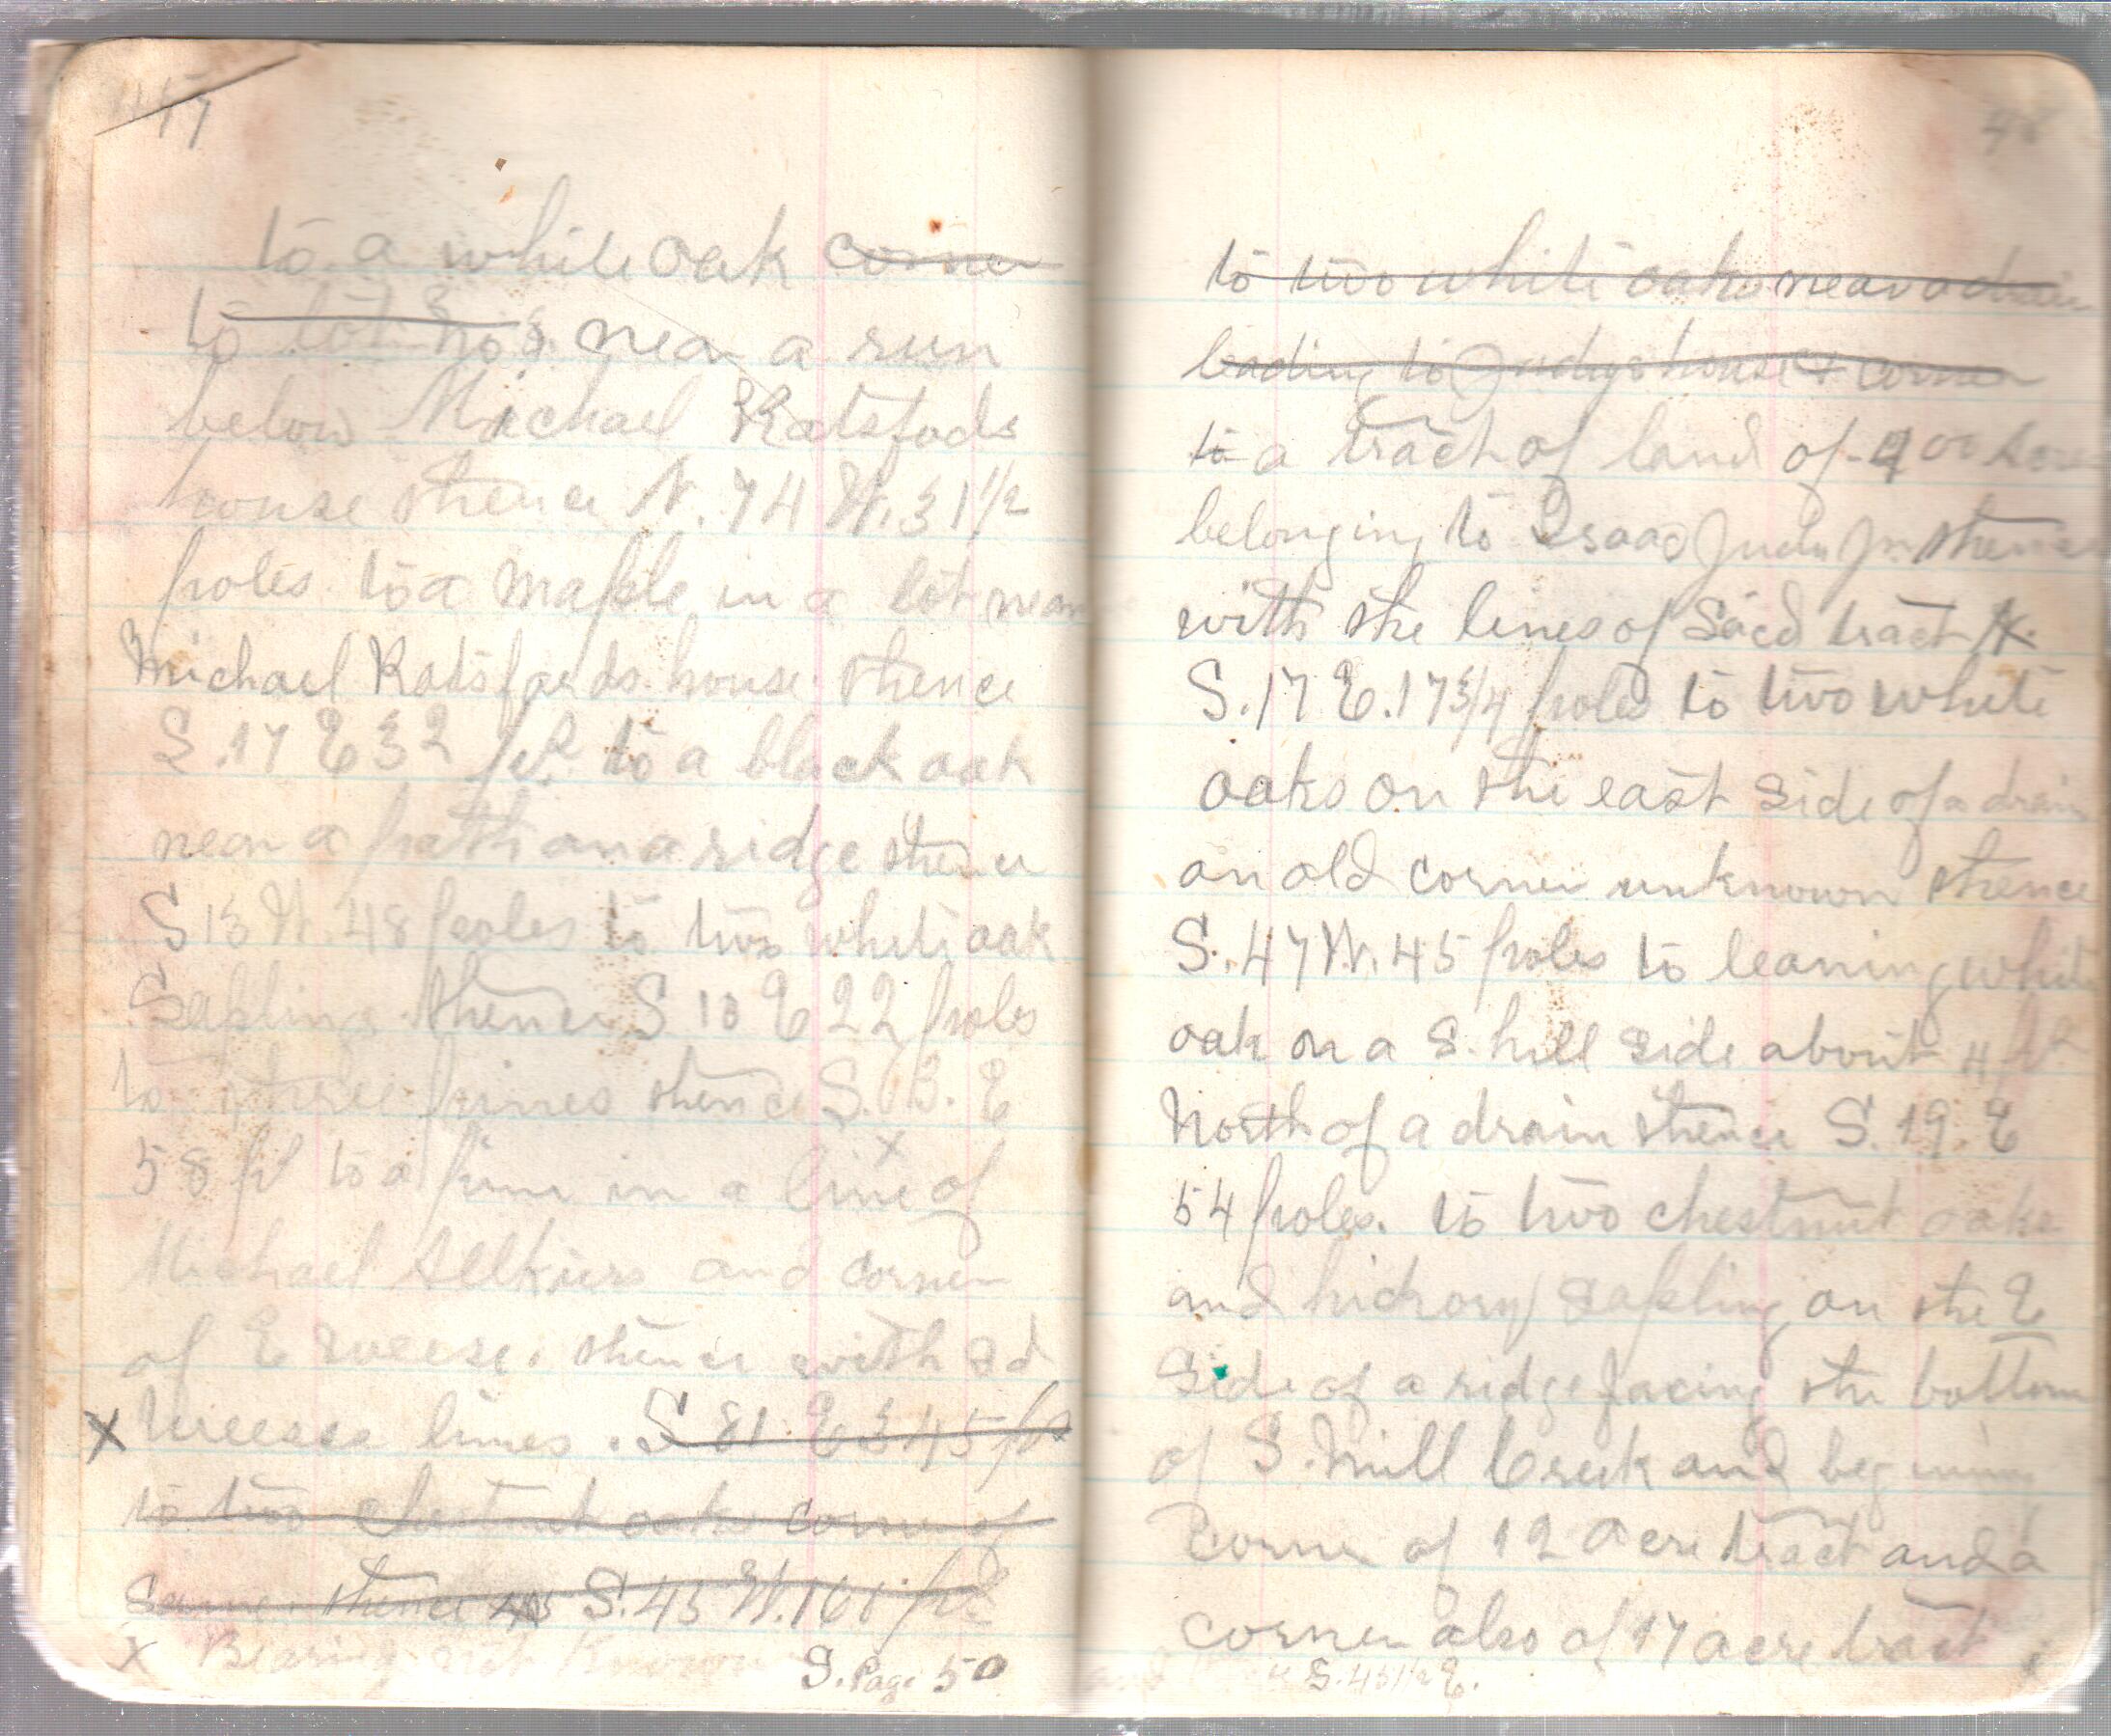 47
to a white oak corner
to lot no 3. near a run
below Michael Ratsfods
house thence N. 74 W. 31 1/2
poles to a maple in a lot near
Michael Ratsfords house thence
S. 17 E 32 pls to a black oak
near a path on a ridge thence
S 13 W. 48 poles to two white oak
Sapling thence S 10 E 22 poles
to three pines thence S. 13. E
58 pl to a pine in a line of
Michael and corner
of E weese. thence with sd
x Weeses lines. S 81. E 345 pls
to two chestnut oaks corner of
Same. thence S. 45 W. 161 pls
x Bearing not Known
S. Page 50
48
to two white oaks near a drain
leading to Judys house & corner
to a tract of land of 400 Acres
belonging to Isaac Judy Jr. thence
with the lines of Said tract
S. 17 E. 17 3/4 poles to two white
oaks on the east side of a drain
an old corner unknown thence
S. 47 W. 45 poles to leaning white
oak on a S. hill side about 4 pls
North of a drain thence S. 19. E
54 poles. to two chestnut oaks
and hickory sapling on the E
Side of a ridge facing the bottom
of S. Mill Creek and beginning
Corner of 12 acre tract and a
corner also of 17 acre tract
S. 45 1/2 E.